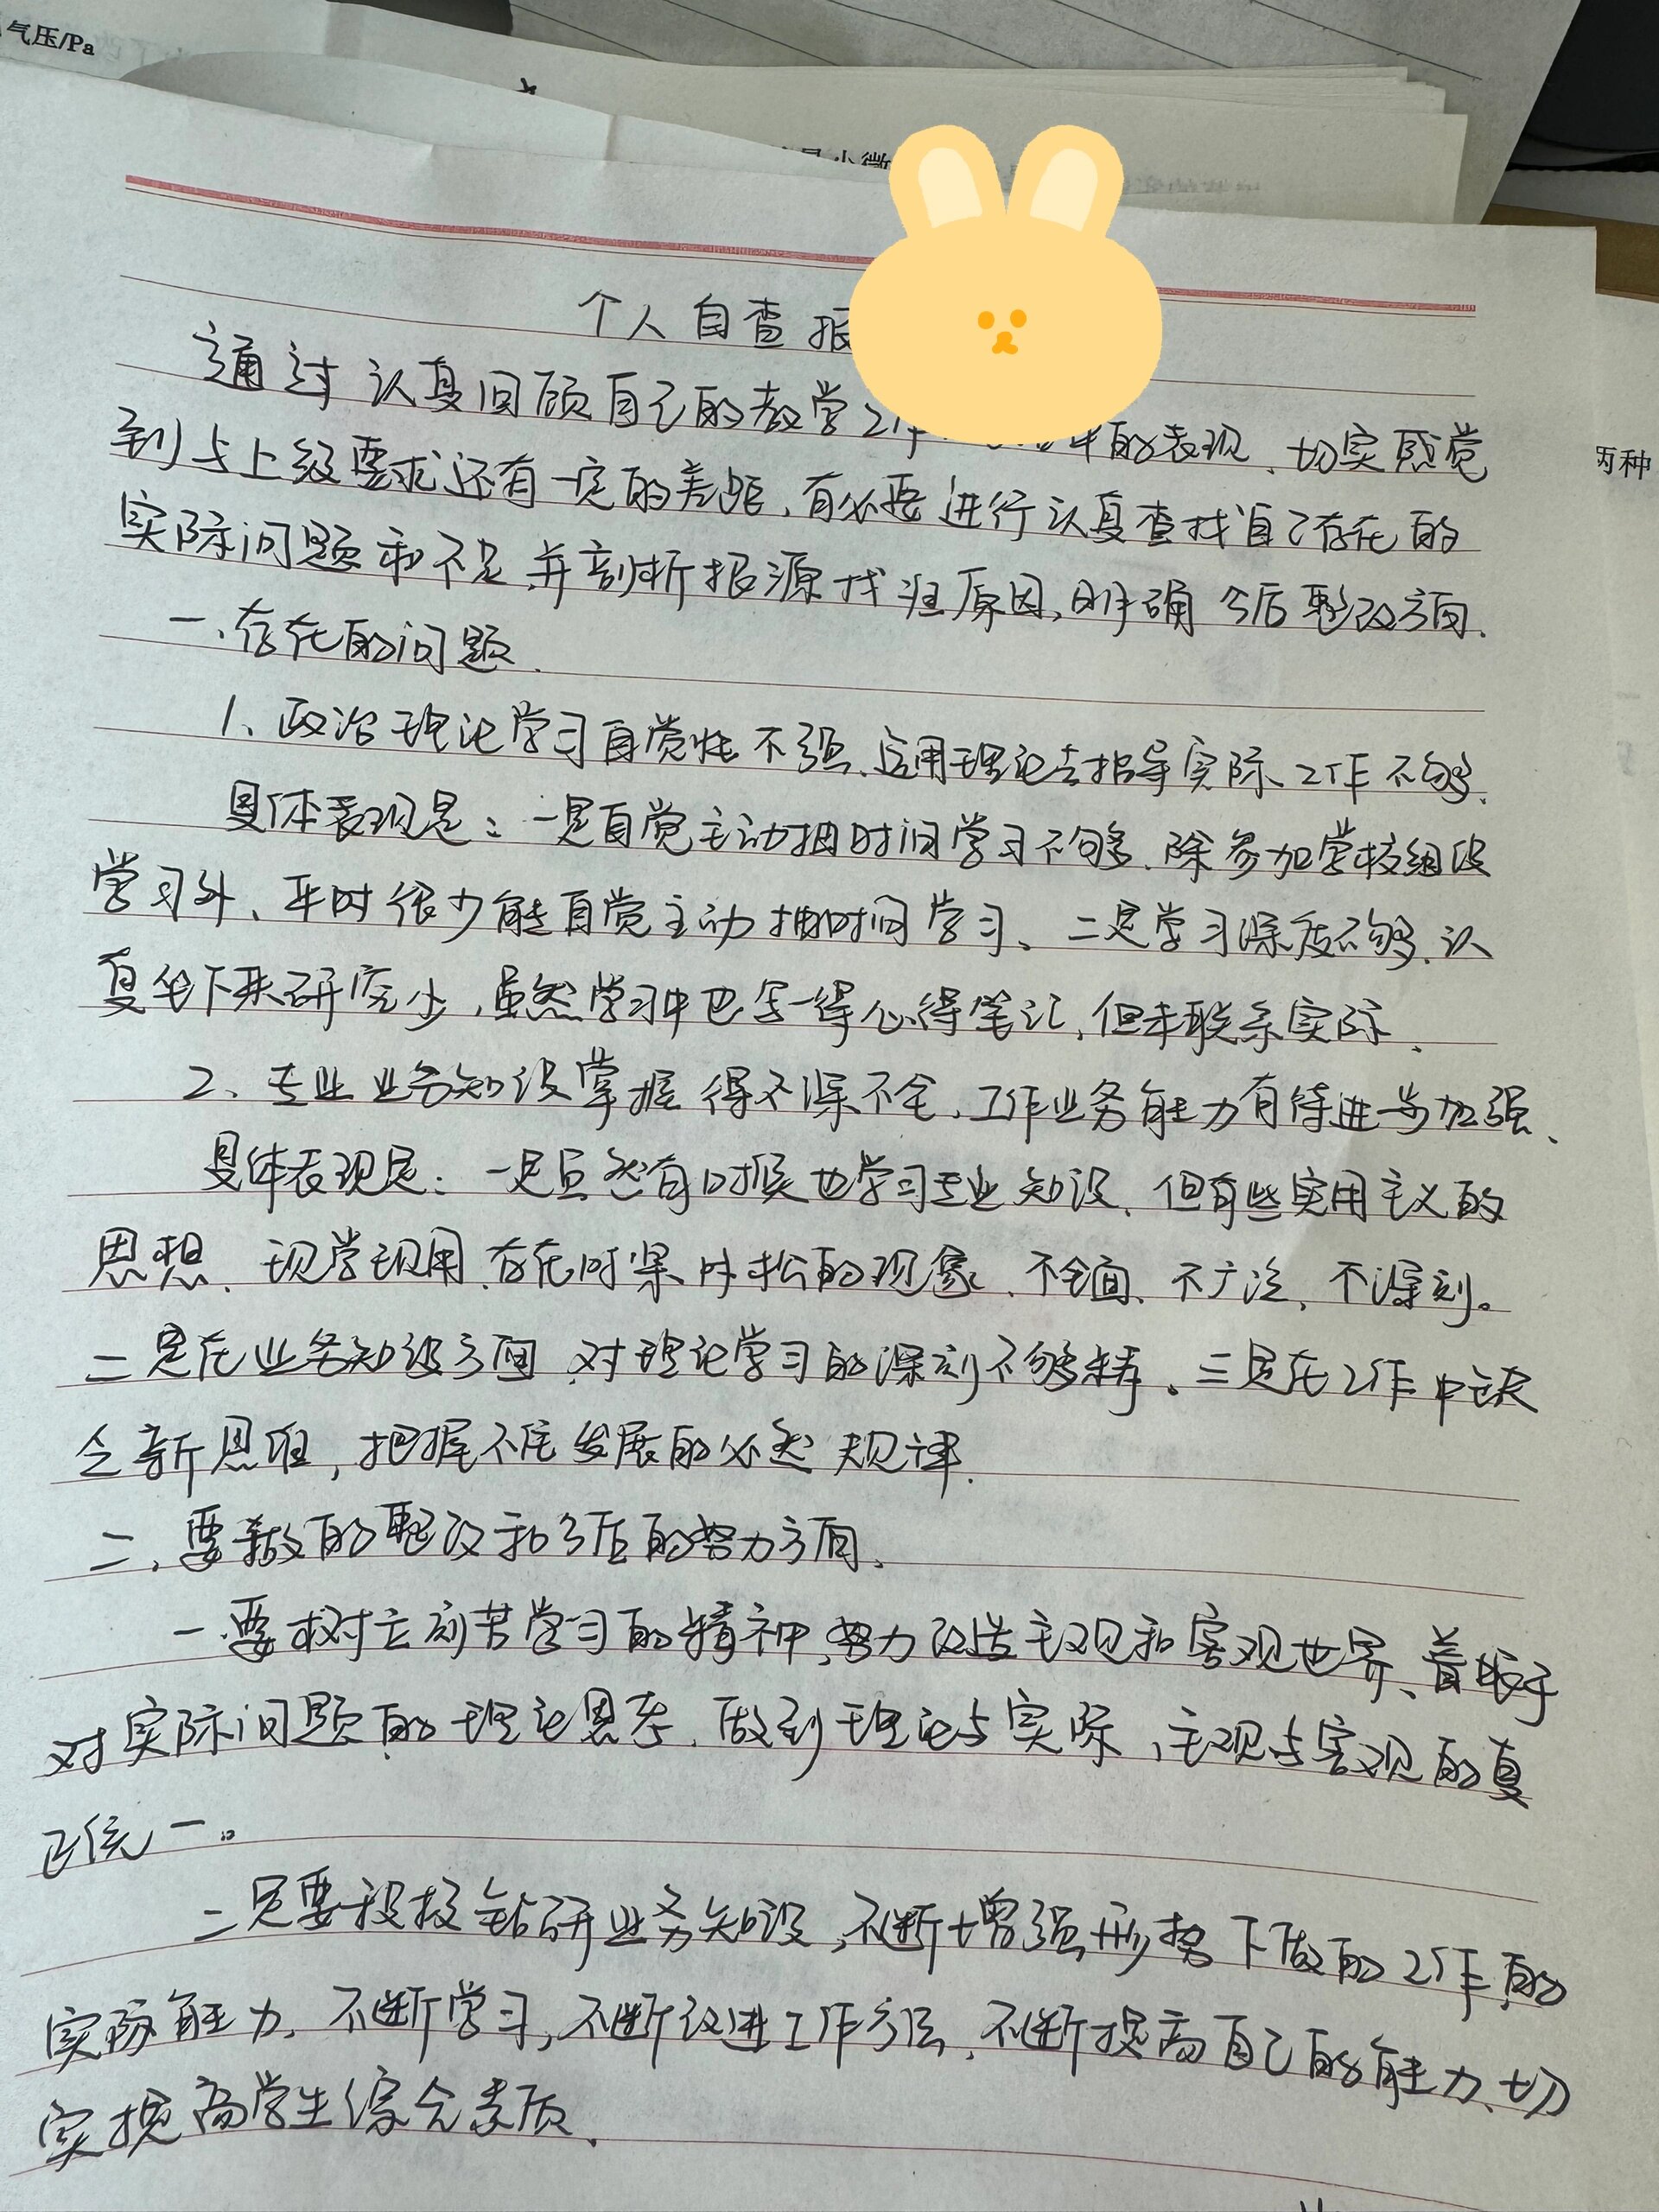 气压/Pa
小微
个人自查报
通过认真回顾自己的教学工作 年的表现、切实感觉
两种
到与上级要求还有一定的差距、有必要进行认真查找自己存在的
实际问题和不足、并剖析根源找准原因,明确今后整改方向.
一、存在的问题.
1、政治理论学习自觉性不强、运用理论去指导实际工作不够.
具体表现是:一是自觉主动抽时间学习不够、除参加学校组织
学习外、平时很少能自觉主动抽时间学习、二是学习深度不够、认
真坐下来研究少,虽然学习中也写一得心得笔记,但未联系实际、
2、专业业务知识掌握得不深不全、工作业务能力有待进一步加强、
具体表现是:一是虽然有时候也学习专业知识、但有些实用主义的
思想、现学现用、存在时紧时松的现象、不全面、不广泛、不深刻。
二是在业务知识方面、对理论学习的深刻不够精。三是在工作中缺
乏新思维,把握不住发展的必然规律.
二、要做的整改和今后的努力方向、
一、要树立刻苦学习的精神,努力改造主观和客观世界、着眼于
对实际问题的理论思考、做到理论与实际、主观与客观的真
正统一。
二是要积极钻研业务知识,不断增强形势下做的工作的
实际能力、不断学习,不断改进工作方法、不断提高自己的能力、切
实提高学生综合素质、